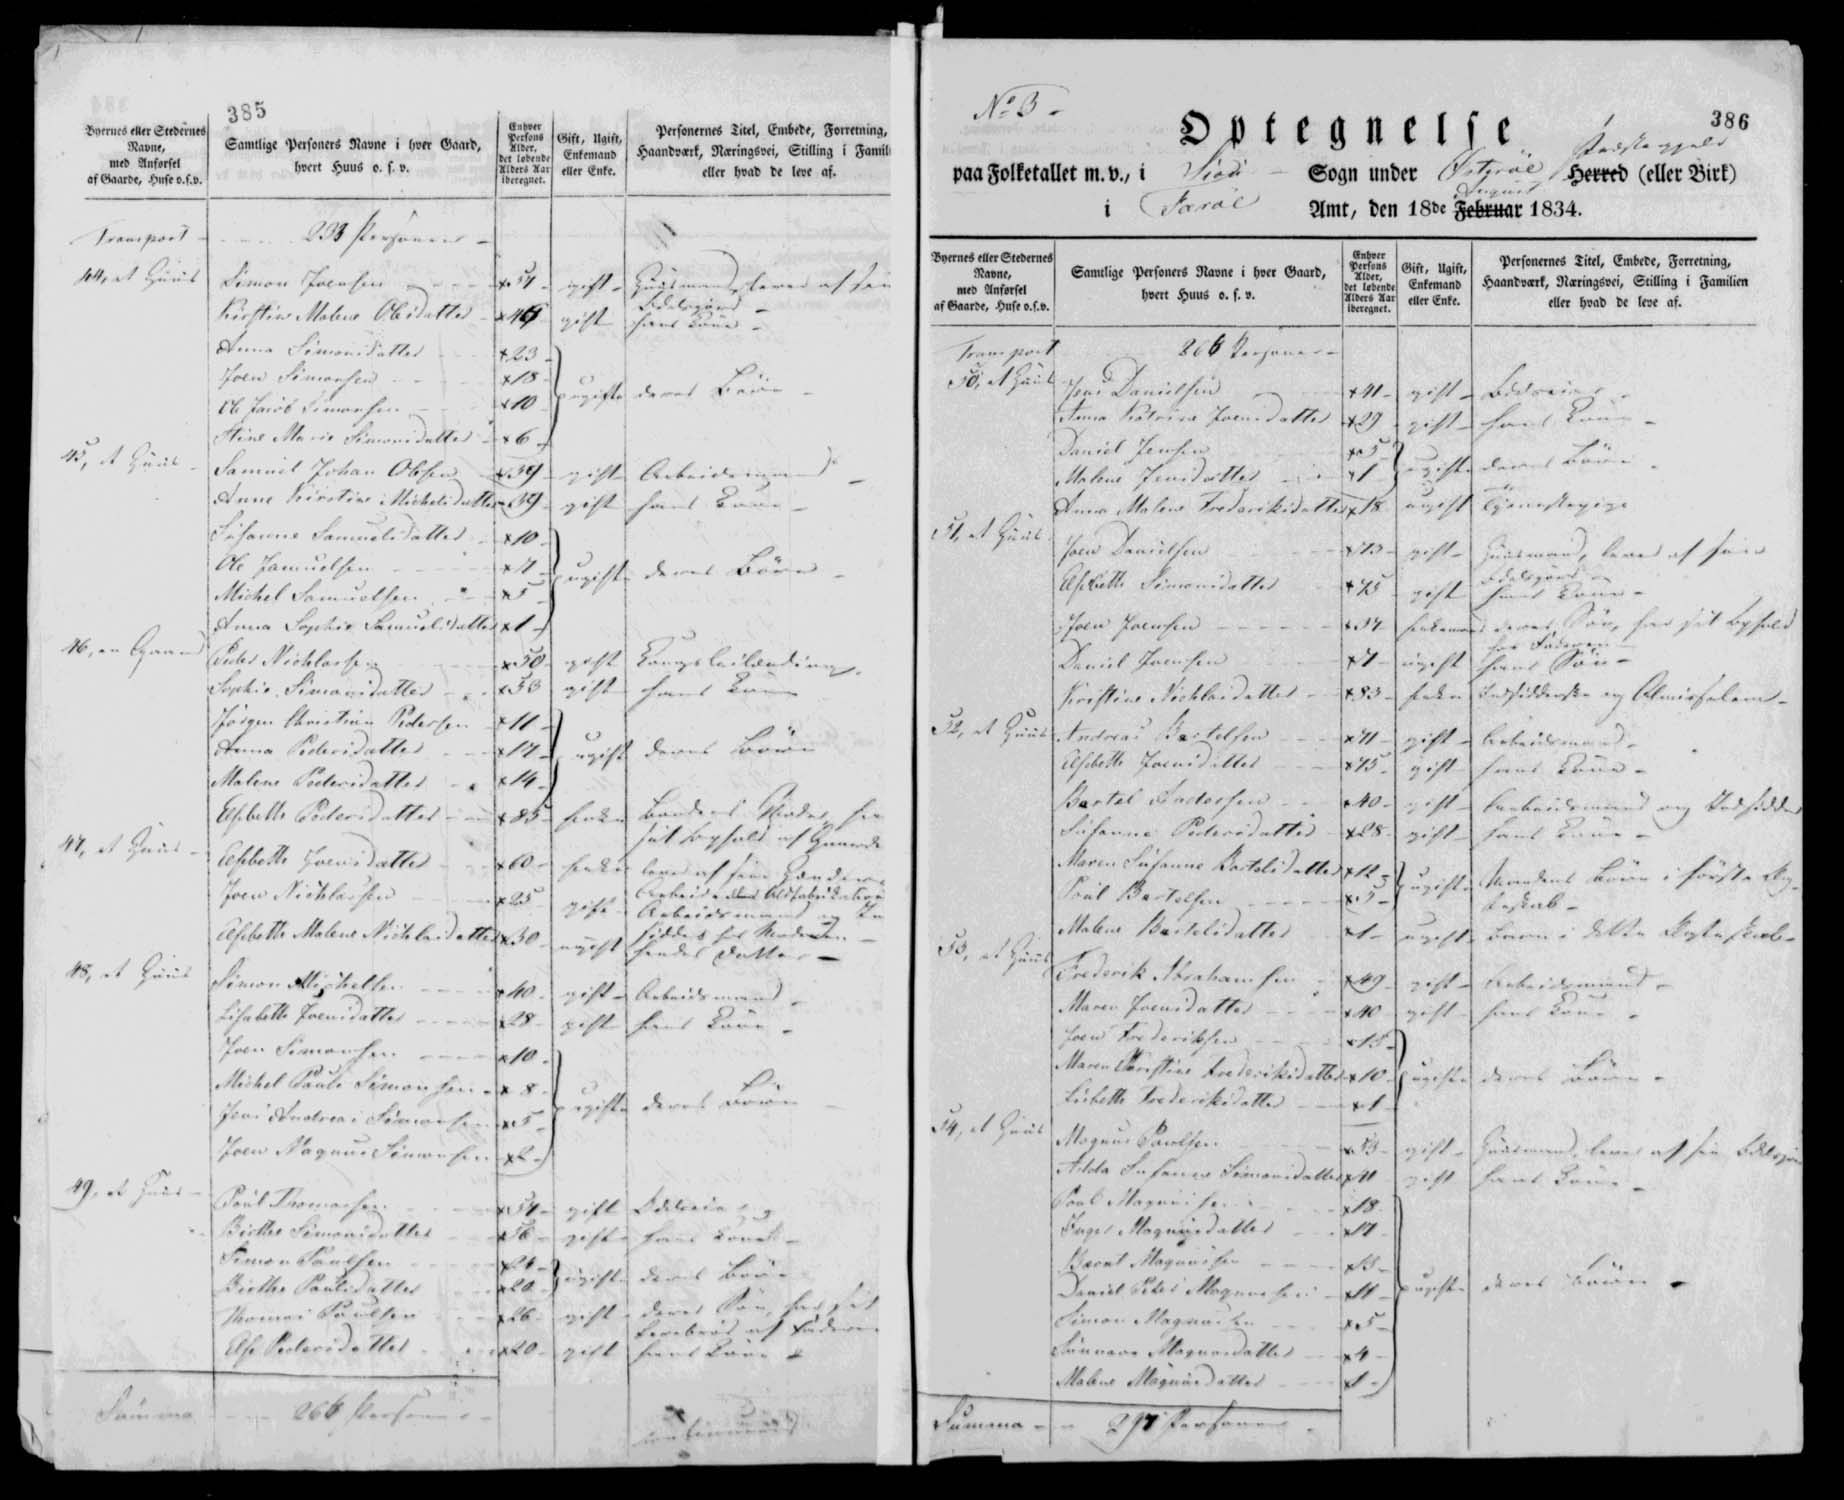 385
Byernes eller Stedernes Navne, med Anførsel af Gaarde, Huse o.s.v.
Samtlige Personers Navne i hver Gaard, hvert Huus o. s. v.
Enhver Persons Alder, det løbende Alders Aar iberegnet.
Gift, Ugift, Enkemand eller Enke.
Personernes Titel, Embede, Forretning, Haandværk, Næringsvei, Stilling i Famili eller hvad de leve af.
Transport - 233 Personer -
44, et Huus Simon Joensen x 54 - gift - Huusmand, lever af sin Odelsjord -
Kirstine Malene Olesdatter x 46 gift hans Kone -
Anna Simonsdatter x 23
Joen Simonsen x 18 ugifte deres Börn -
Ole Jacob Simonsen x 10
Stine Marie Simonsdatter x 6
45, et Huus - Samuel Johan Olesen x 39 - gift Arbeidsmand -
Anne Kirstine Michelsdatter 39 gift hans Kone -
Susanne Samuelsdatter x 10
Ole Samuelsen x 7 ugifte deres Börn -
Michel Samuelsen x 5
Anna Sophie Samuelsdatter x 1
46, en Gaard Peder Nichlassen x 50 gift Kongsleilænding
Sophie Simonsdatter x 53 gift hans Kone
Jörgen Christian Pedersen x 11
Anna Pedersdatter x 17 ugift deres Börn
Malene Pedersdatter x 14
Elsbeth Pedersdatter x 85 Enke Bondens Moder, har sit Ophold af Gaarden
47, et Huus - Elsbeth Joensdatter x 60 - Enke lever af sine Hænders Arbeide
Joen Nichlassen x 25 gift Arbeidsmand og Indsidder hos Moderen -
Elsbeth Malene Nichlasdatter x 30 ugift hendes Datter -
48, et Huus Simon Michelsen x 40 gift - Arbeidsmand -
Lisabeth Joensdatter x 28 - gift hans Kone -
Joen Simonsen x 10 -
Michel Pauli Simonsen x 8 - ugifte deres Börn
Jens Andreas Simonsen x 5
Joen Magnus Simonsen x 2
49, et Huus - Poul Thomasen x 54 gift Odelseier
Birthe Simonsdatter x 56 gift hans Kone -
Simon Poulsen x 24 ugifte deres Börn
Birthe Poulsdatter x 20
Thomas Poulsen x 26 - gift - deres Sön, har sit Levebröd af Faderen
Else Pedersdatter x 20 - gift hans Kone
Summa - 266 Personer -
No 3 -
386
Optegnelse
paa Folketallet m. v., i Siöv Sogn under Österöe Præstegjeld Herred (eller Birk)
i Færöe Amt, den 18de August Februar 1834.
Byernes eller Stedernes Navne, med Anførsel af Gaarde, Huse o.s.v.
Samtlige Personers Navne i hver Gaard, hvert Huus o. s. v.
Enhver Persons Alder, det løbende Alders Aar iberegnet.
Gift, Ugift, Enkemand eller Enke.
Personernes Titel, Embede, Forretning, Haandværk, Næringsvei, Stilling i Familien eller hvad de leve af.
Transport 266 Personer -
50, et Huus Jens Danielsen x 41 - gift - Odelseier -
Anna Katrine Joensdatter x 29 - gift - hans Kone -
Daniel Jensen x 5 ugifte deres Börn -
Malene Jensdatter x 1
Anna Malene Frederiksdatter x 18 ugift Tjenestepige
51, et Huus Joen Danielsen x 73 - gift - Huusmand, lever af sin Odelsjord -
Elsbeth Simonsdatter x 75 gift hans Kone -
Joen Joensen x 37 - Enkemand deres Sön, har sit Ophold hos Faderen -
Daniel Joensen x 7 ugift hans Sön -
Kirstine Nichlasdatter x 83 - Enke Indsidderske og Almisselem -
52, et Huus Andreas Bartelsen x 71 - gift - Arbeidsmand -
Elsbeth Joensdatter x 75 - gift - hans Kone -
Bartel Andersen x 40 - gift - Arbeidsmand og Indsidder
Susanne Pedersdatter x 28 - gift - hans Kone -
Maren Susanne Bartelsdatter x 12 ugifte Mandens Börn i første Ægteskab -
Poul Bartelsen x 5
Malene Bartelsdatter x 1 - ugift - Barn i dette Ægteskab -
53, et Huus Frederik Abrahamsen x 49 - gift - Arbeidsmand -
Maren Joensdatter x 40 gift - hans Kone -
Joen Frederiksen x 15 -
Maren Kirstine Frederiksdatter x 10 - ugifte deres Börn -
Lisbeth Frederiksdatter x 1
54, et Huus Magnus Poulsen x 53 - gift - Huusmand, lever af sin Odelsjord
Adda Susanne Simonsdatter x 41 gift hans Kone -
Poul Magnussen x 18
Inger Magnusdatter x 17
Barent Magnussen x 13
Daniel Peter Magnussen x 11 ugifte deres Börn -
Simon Magnussen x 5
Sunneva Magnusdatter x 4
Malene Magnusdatter x 1
Summa - 297 Personer -